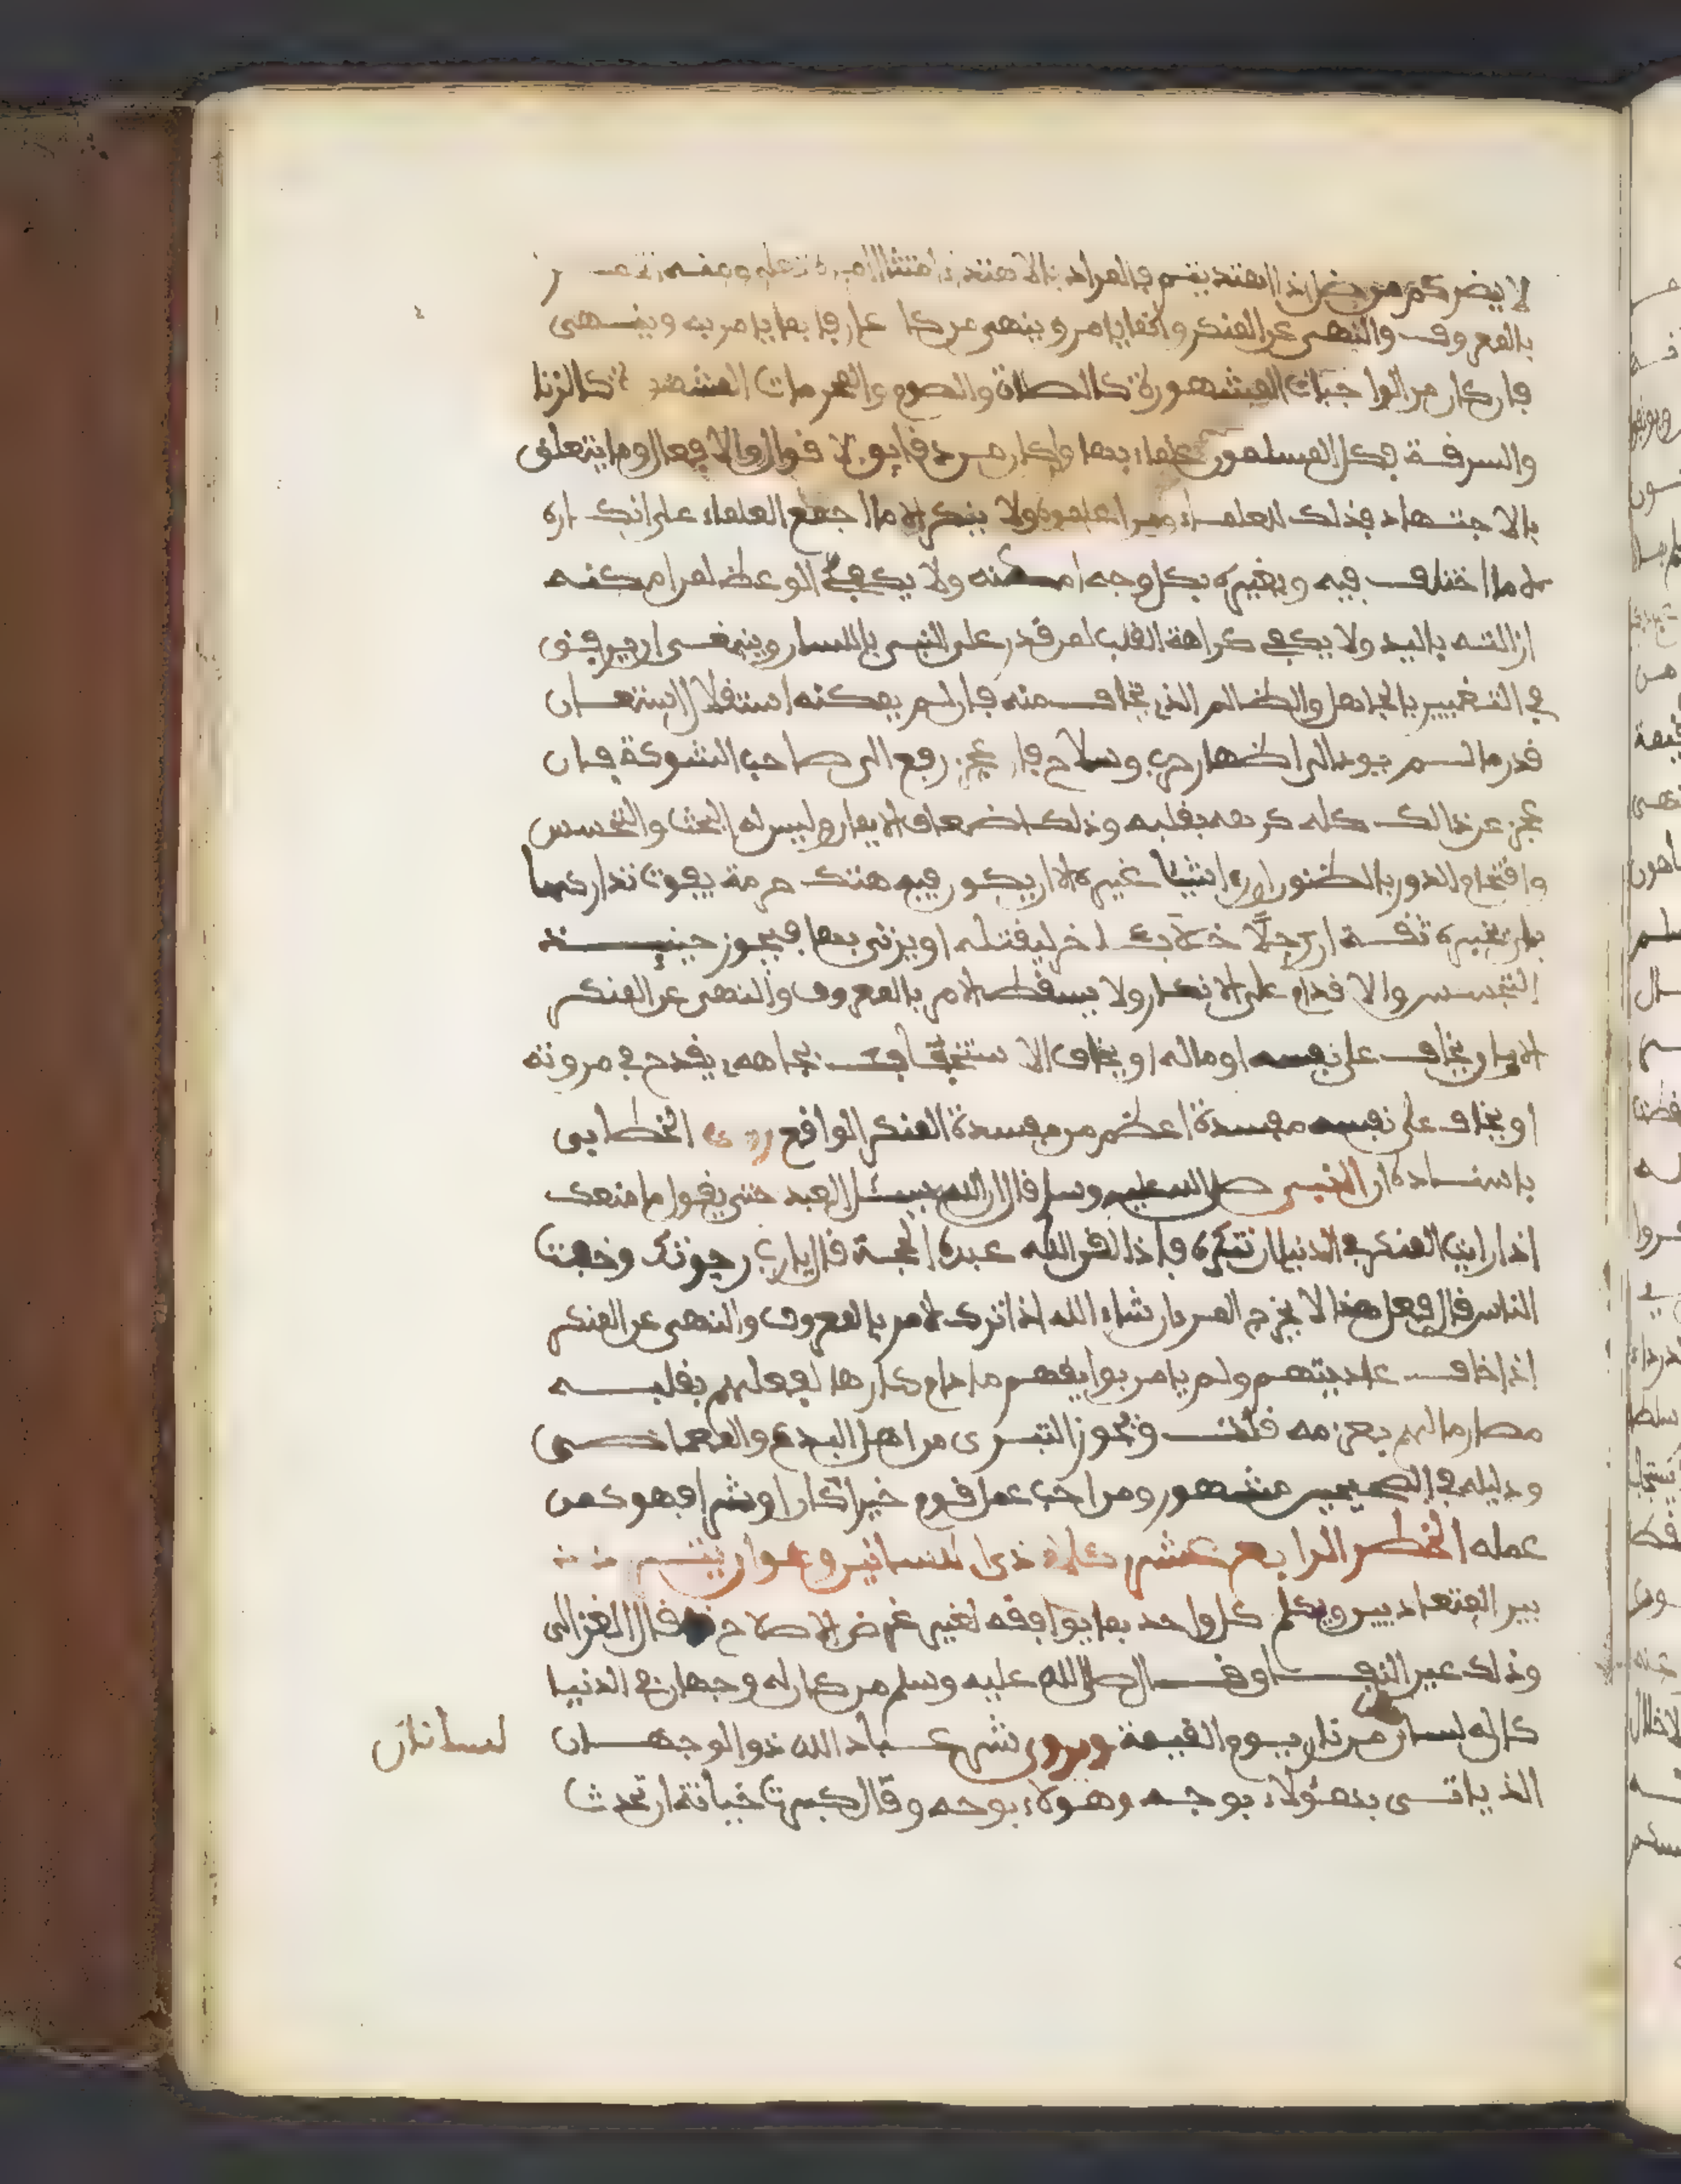 لا يضركم من ضل اذا اهتديتم فالمراد بالاهتداء امتثال الامر
بالمعروف والنهي عن المنكر وانما يامر وينهى من كان عارفا بما يامر به وينهى
فان كان من الواجبات المشهورة كالصلاة والصوم والمحرمات المشهورة كالزنا
والسرقة فكل المسلمون علماء بها وان كان من دقايق الاقوال والافعال وما يتعلق
بالاجتهاد فذلك للعلماء دون العامة ولا ينكر الا ما اجمع العلماء على انكاره
لا ما اختلف فيه ويغيره بكل وجه امكنه ولا يكفي الوعظ لمن امكنه
ازالته باليد ولا يكفي كراهة القلب لمن قدر على النهي باللسان وينبغي ان يرفق
في التغيير بالجاهل والظالم الذي يخاف منه فان لم يمكنه استقلالا استعان
قدر ما لم يود الى اظهار حرب وسلاح فان عجز رفع الى صاحب الشوكة فان
عجز عن ذالك كله كرهه بقلبه وذلك اضعاف الايمان وليس له البحث والتجسس
واقتحام الدور بالظنون او راى شيئا غيره الا ان يكون فيه هتك حرمة يفوت تداركها
بان يخبره ثقة ان رجلا خلا باخر ليقتله او يزني بها فيجوز حينئذ
التجسس والاقدام على الانكار ولا يسقط الامر بالمعروف والنهي عن المنكر
الا بان يخاف على نفسه او ماله او يخاف الاستخفاف بجاهه يقدح في مروته
او يخاف على نفسه مفسدة اعظم من مفسدة المنكر الواقع روى الخطابي
باسناده ان النبي صلى الله عليه وسلم قال ان الله يسئل العبد حتى يقول ما منعك
اذا رايت المنكر في الدنيا ان تنكره فاذا لقن الله عبده الحجة قال يا رب رجوتك وخفت
الناس قال فعلى هذا لا يحرج المر ان شاء الله اذا ترك الامر بالمعروف والنهي عن المنكر
اذا خاف عاديتهم ولم يامن بوايقهم ما دام كارها لفعلهم بقلبه
مصارما لهم بعزمه قلت ويجوز التبري من اهل البدع والمعاصي
ودليله في الصحيحين مشهور ومن احب عمل قوم خيرا كان او شرا فهو كمن
عمله الخطر الرابع عشر كلام ذي اللسانين وهو ان ينم
بين المتعاديين ويكلم كل واحد بما يوافقه لغير غرض الاصلاح قال الغزالي
وذلك عين النفاق وقال صلى الله عليه وسلم من كان له وجهان في الدنيا
كان له لسانان من نار يوم القيمة ويروى شر عباد الله ذو الوجهان
لسانان
الذي ياتي بهؤلاء بوجه وهولاء بوجه وقال كبرت خيانة ان تحدث